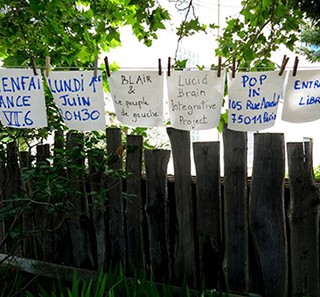 ENFAI
ANCE
VII.6
LUNDI 1er
Juin
20H30
BLAIR
&
Le peuple
de gauche
Lucid
Brain
Integrative
Project
POP
IN
105 Rue Amelot
75011 Paris
ENTR
LIBR